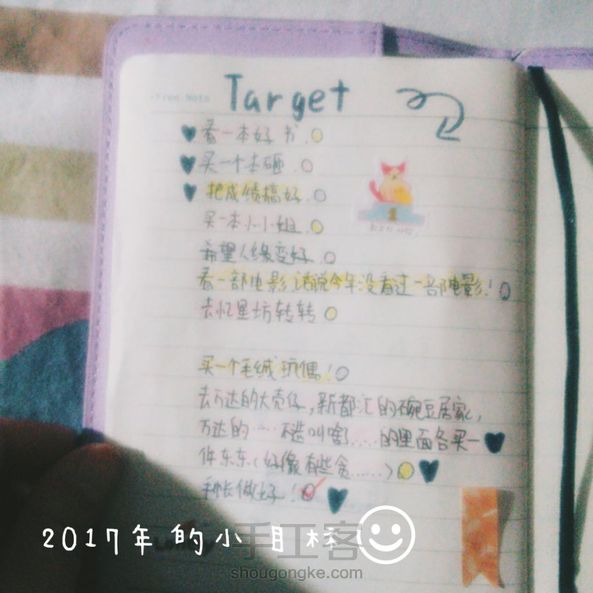 Free Note
Target
看一本好书
买一个本砸
把成绩搞好
买一本小小姐
希望人缘变好
看一部电影(话说今年没看过一部电影!
去忆里坊转转
买一个毛绒玩偶!
去万达的大壳仔,新都汇的碗豆居家,
万达的……不造叫啥……的里面各买一
件东东(好像有些贪……)
手帐做好!
2017年的小目标
手工客
shougongke.com